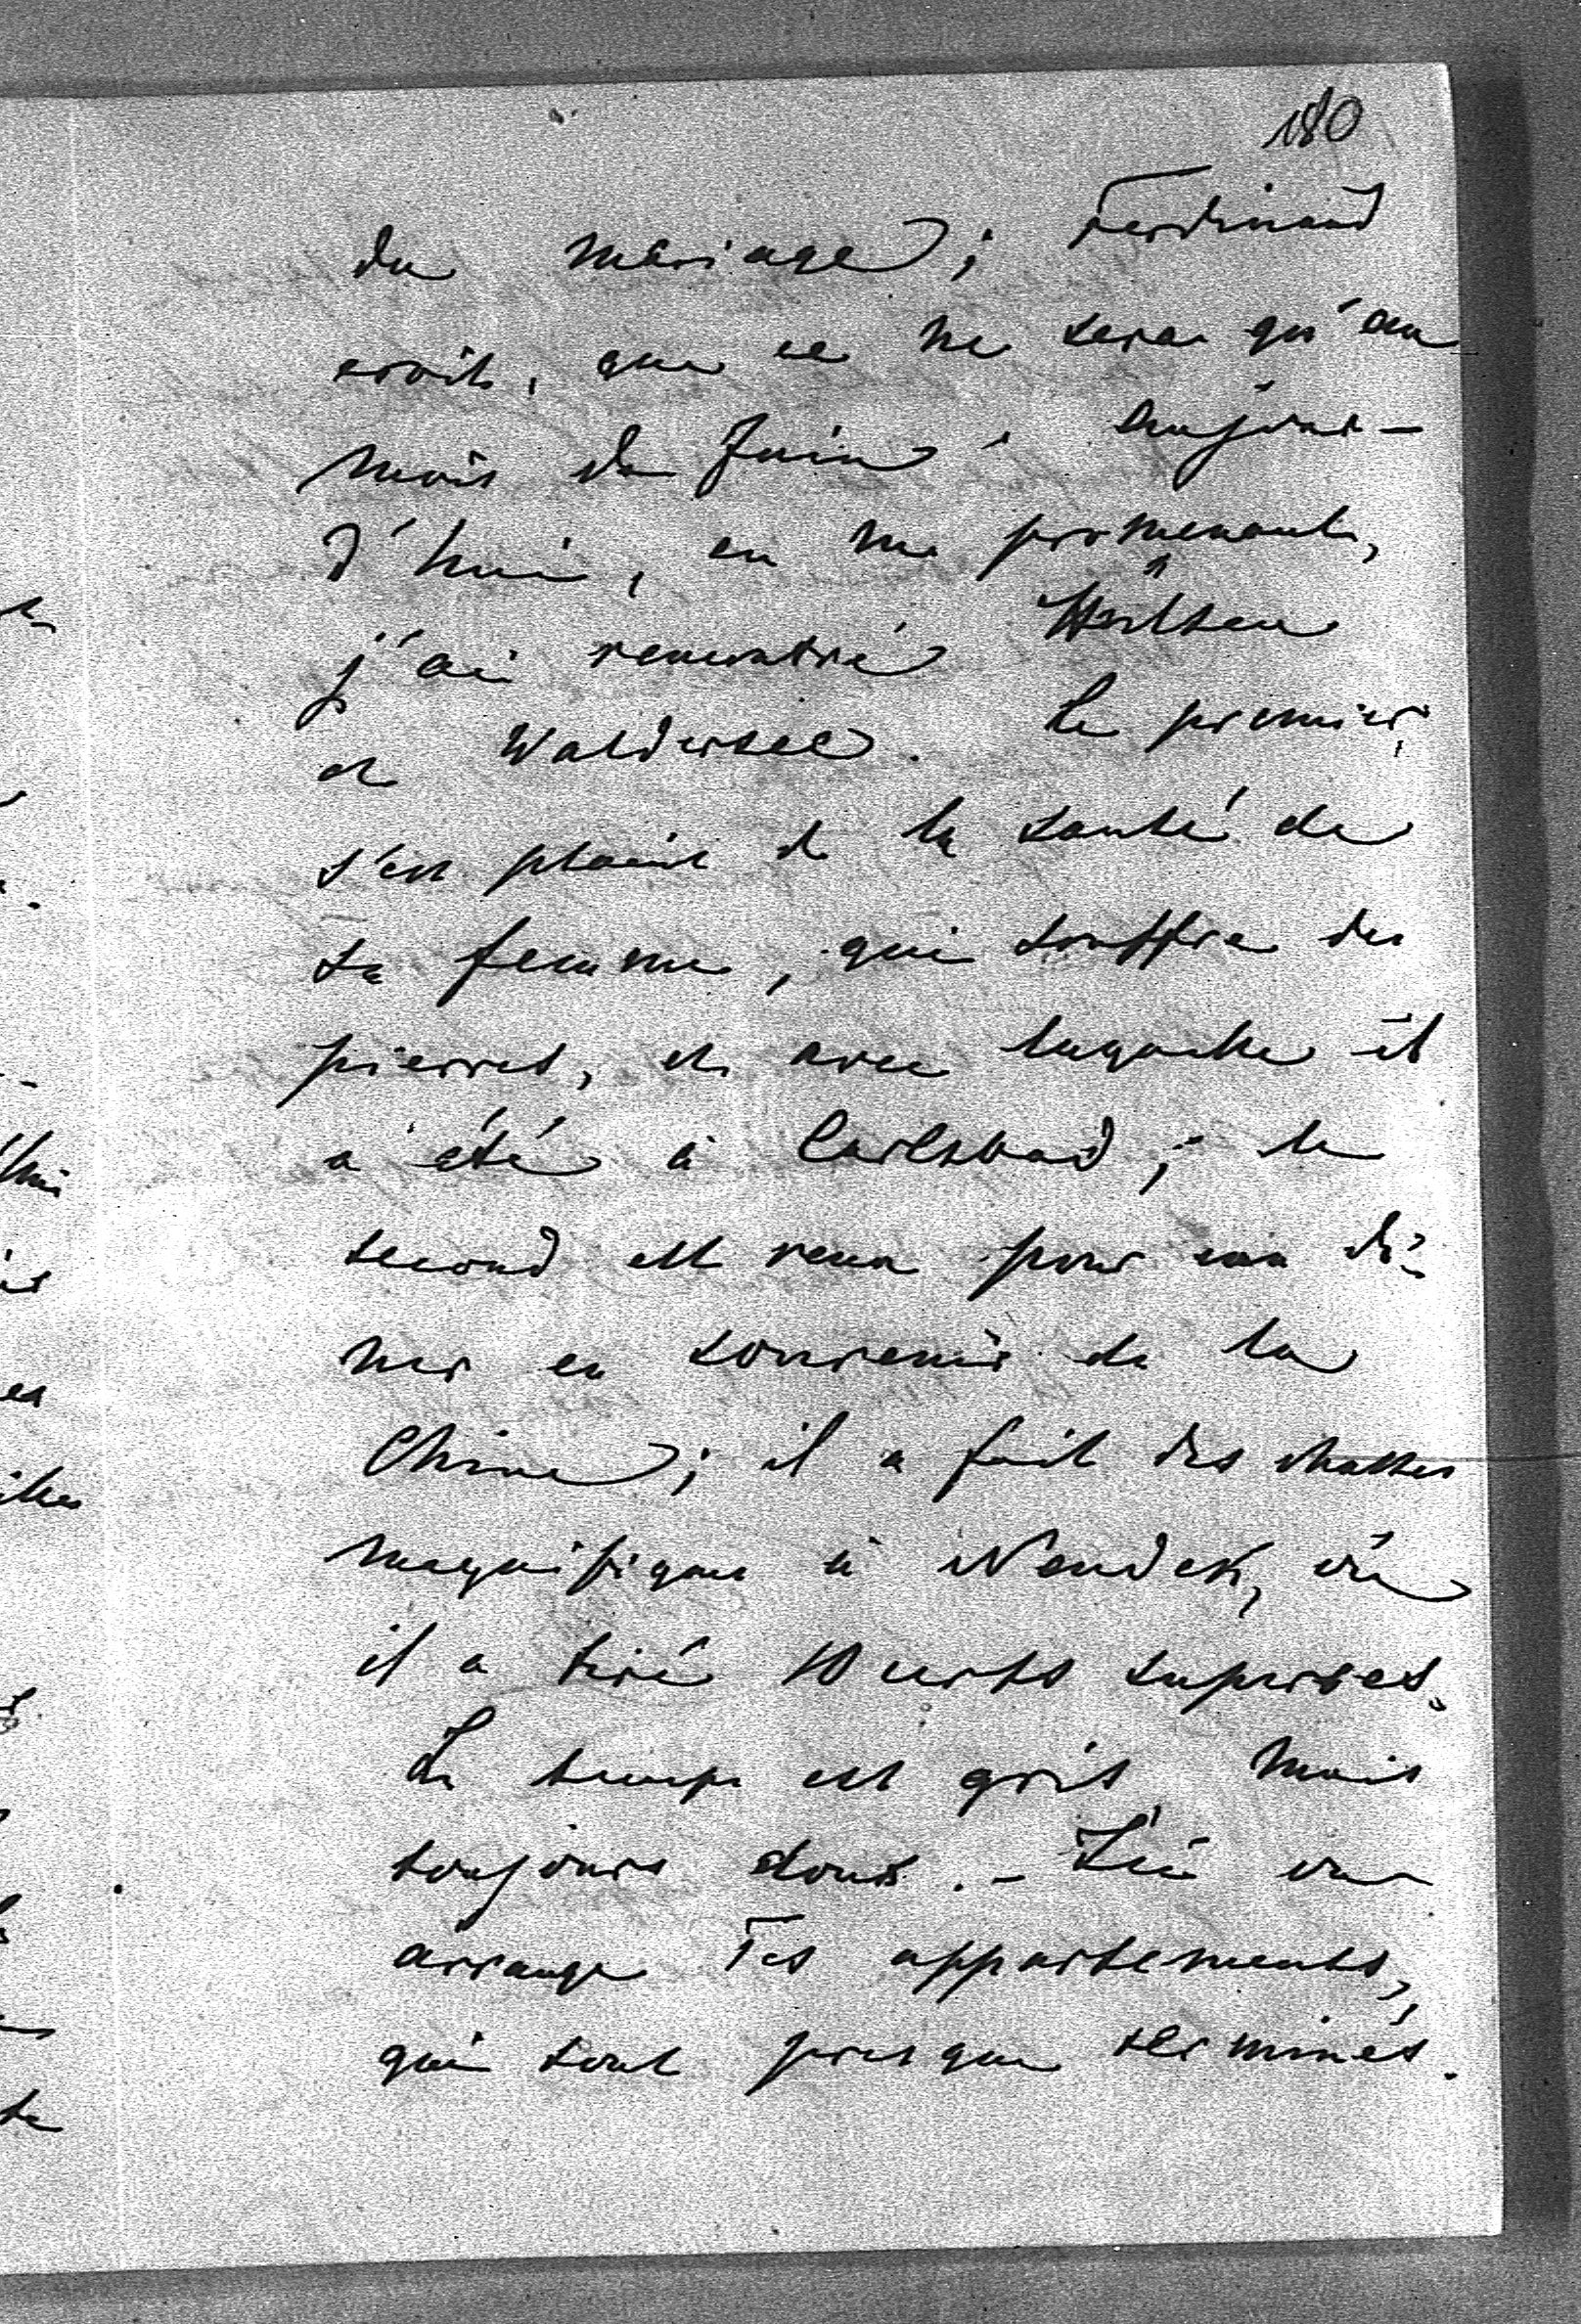 180
du mariage ; Ferdinand
croit, que ce ne sera qu'au
mois de Juin. Aujour-
d'hui, en me promenant,
j'ai rencontré Hülsen
et Waldersee. Le premier,
s'est plaint de la santé de
sa femme, qui souffre des
pierres, et avec laquelle il
a été à Carlsbad ; le
second est venu pour un dî-
ner en souvenir de la
Chine ; il a fait des chasses
magnifiques à Neudek, où
il a tiré 10 cerfs superbes.
Le temps est gris mais
toujours doux. - Ici on
arrange Tes appartements,
qui sont presque terminés.